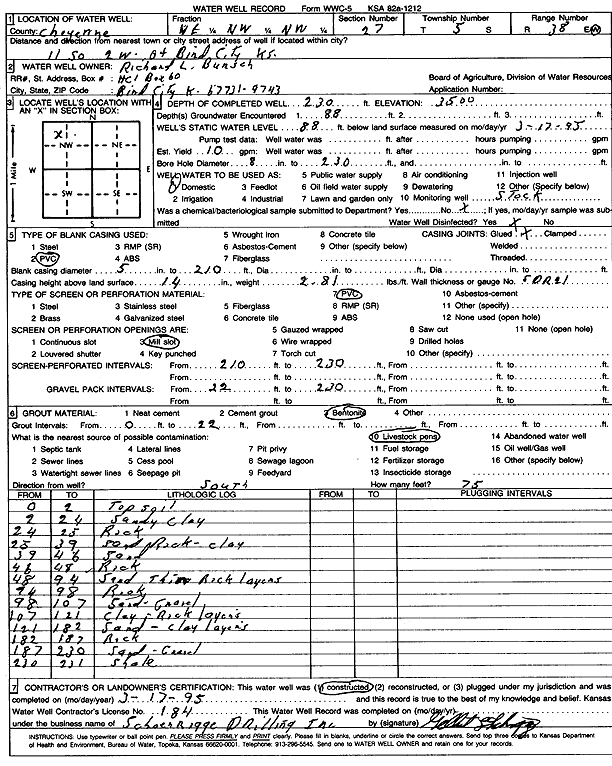 WATER WELL RECORD Form WWC-5 KSA 82a-1212
1 LOCATION OF WATER WELL: Fraction Section Number Township Number Range Number
County: Cheyenne NE ¼ NW ¼ NW ¼ 27 T 5 S R 38 E/W
Distance and direction from nearest town or city street address of well if located within city?
11 So 2 W. of Bird City Ks.
2 WATER WELL OWNER: Richard L. Bursch
RR#, St. Address, Box # : HC1 Box 60 Board of Agriculture, Division of Water Resources
City, State, ZIP Code : Bird City K. 67731-9743 Application Number:
3 LOCATE WELL'S LOCATION WITH AN "X" IN SECTION BOX:
N
X
NW NE
W E
SW SE
S
1 Mile
4 DEPTH OF COMPLETED WELL 230 ft. ELEVATION: 3500
Depth(s) Groundwater Encountered 1. 88 ft. 2. ft. 3. ft.
WELL'S STATIC WATER LEVEL 88 ft. below land surface measured on mo/day/yr 3-17-95
Pump test data: Well water was ft. after hours pumping gpm
Est. Yield 10 gpm: Well water was ft. after hours pumping gpm
Bore Hole Diameter 8 in. to 230 ft., and in. to ft.
WELL WATER TO BE USED AS: 5 Public water supply 8 Air conditioning 11 Injection well
1 Domestic 3 Feedlot 6 Oil field water supply 9 Dewatering 12 Other (Specify below)
2 Irrigation 4 Industrial 7 Lawn and garden only 10 Monitoring well Stock
Was a chemical/bacteriological sample submitted to Department? Yes No X ; If yes, mo/day/yr sample was submitted Water Well Disinfected? Yes X No
5 TYPE OF BLANK CASING USED: 5 Wrought iron 8 Concrete tile CASING JOINTS: Glued X Clamped
1 Steel 3 RMP (SR) 6 Asbestos-Cement 9 Other (specify below) Welded
2 PVC 4 ABS 7 Fiberglass Threaded
Blank casing diameter 5 in. to 210 ft., Dia in. to ft., Dia in. to ft.
Casing height above land surface 14 in., weight 2.81 lbs./ft. Wall thickness or gauge No. SDR21
TYPE OF SCREEN OR PERFORATION MATERIAL: 7 PVC 10 Asbestos-cement
1 Steel 3 Stainless steel 5 Fiberglass 8 RMP (SR) 11 Other (specify)
2 Brass 4 Galvanized steel 6 Concrete tile 9 ABS 12 None used (open hole)
SCREEN OR PERFORATION OPENINGS ARE: 5 Gauzed wrapped 8 Saw cut 11 None (open hole)
1 Continuous slot 3 Mill slot 6 Wire wrapped 9 Drilled holes
2 Louvered shutter 4 Key punched 7 Torch cut 10 Other (specify)
SCREEN-PERFORATED INTERVALS: From 210 ft. to 230 ft., From ft. to ft.
From ft. to ft., From ft. to ft.
GRAVEL PACK INTERVALS: From 22 ft. to 230 ft., From ft. to ft.
From ft. to ft., From ft. to ft.
6 GROUT MATERIAL: 1 Neat cement 2 Cement grout 3 Bentonite 4 Other
Grout Intervals: From 0 ft. to 22 ft., From ft. to ft., From ft. to ft.
What is the nearest source of possible contamination: 10 Livestock pens 14 Abandoned water well
1 Septic tank 4 Lateral lines 7 Pit privy 11 Fuel storage 15 Oil well/Gas well
2 Sewer lines 5 Cess pool 8 Sewage lagoon 12 Fertilizer storage 16 Other (specify below)
3 Watertight sewer lines 6 Seepage pit 9 Feedyard 13 Insecticide storage
Direction from well? South How many feet? 75
FROM TO LITHOLOGIC LOG FROM TO PLUGGING INTERVALS
0 2 Top soil
2 24 Sandy Clay
24 25 Rock
25 39 Sand Rock-clay
39 46 Sand
46 48 Rock
48 94 Sand Thin Rock layers
94 98 Rock
98 107 Sand-Gravel
107 121 Clay-Rock layers
121 182 Sand-Clay layers
182 187 Rock
187 230 Sand-Gravel
230 231 Shale
7 CONTRACTOR'S OR LANDOWNER'S CERTIFICATION: This water well was (1) constructed, (2) reconstructed, or (3) plugged under my jurisdiction and was
completed on (mo/day/year) 3-17-95 and this record is true to the best of my knowledge and belief. Kansas
Water Well Contractor's License No. 184 This Water Well Record was completed on (mo/day/yr)
under the business name of Drilling Inc by (signature)
INSTRUCTIONS: Use typewriter or ball point pen. PLEASE PRESS FIRMLY and PRINT clearly. Please fill in blanks, underline or circle the correct answers. Send top three copies to Kansas Department
of Health and Environment, Bureau of Water, Topeka, Kansas 66620-0001. Telephone: 913-296-5545. Send one to WATER WELL OWNER and retain one for your records.